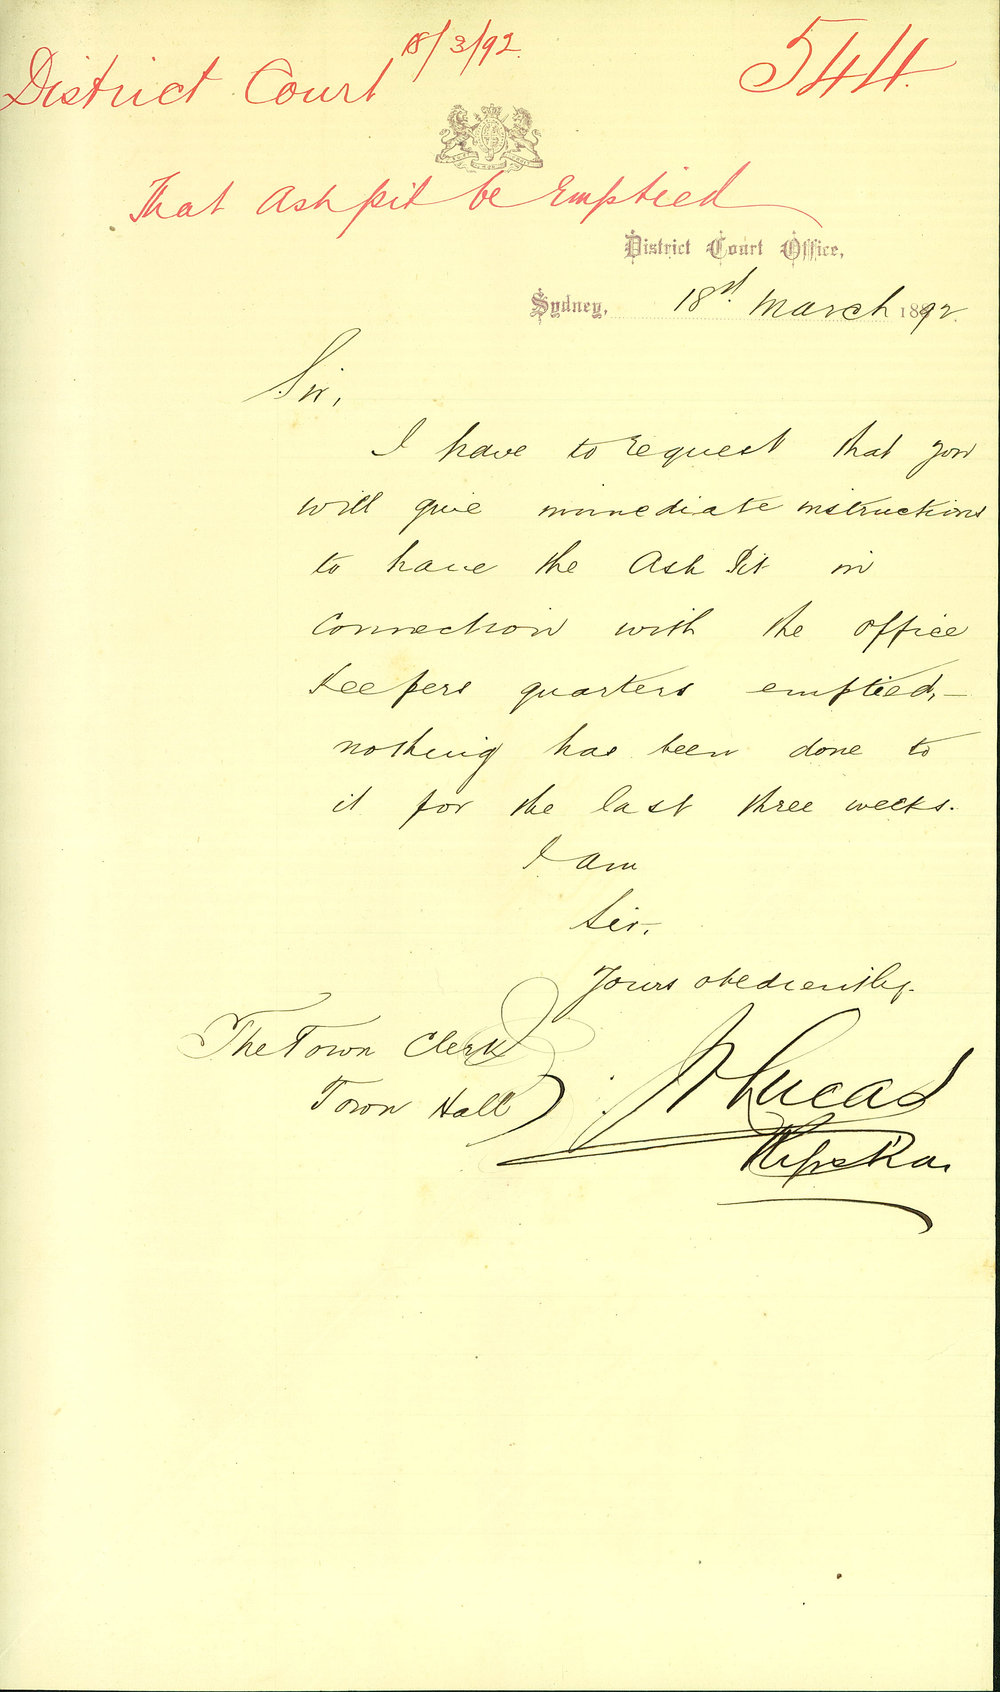 18/3/92
District Court 544.
That Ash pit be Emptied
District Court Office,
Sydney, 18st. March 1892.
Sir,
I have to request that you
will give immediate instructions
to have the Ash Pit in
connection with the office
Keepers quarters emptied, –
nothing has been done to
it for the last three weeks.
I am
Sir.
Yours obediently.
The Town Clerk
Town Hall
Lucas